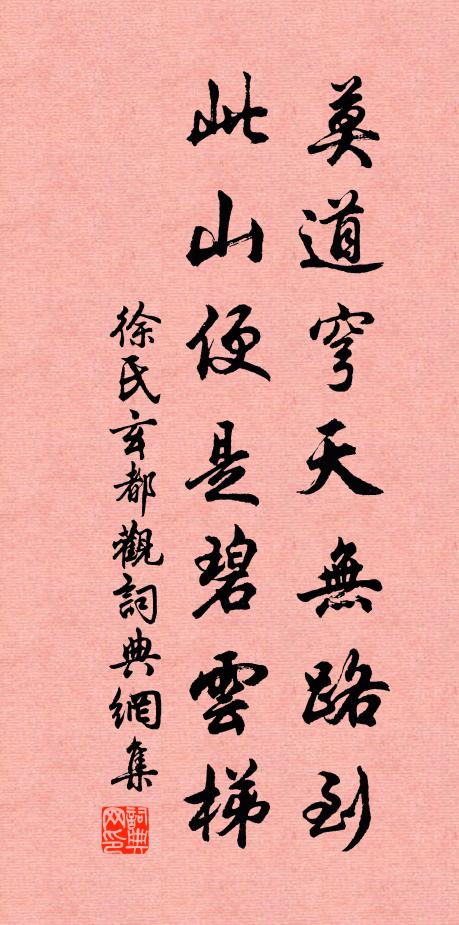 莫道穹天無路到
此山便是碧雲梯
徐氏玄都觀詞典網集
詞典
网印